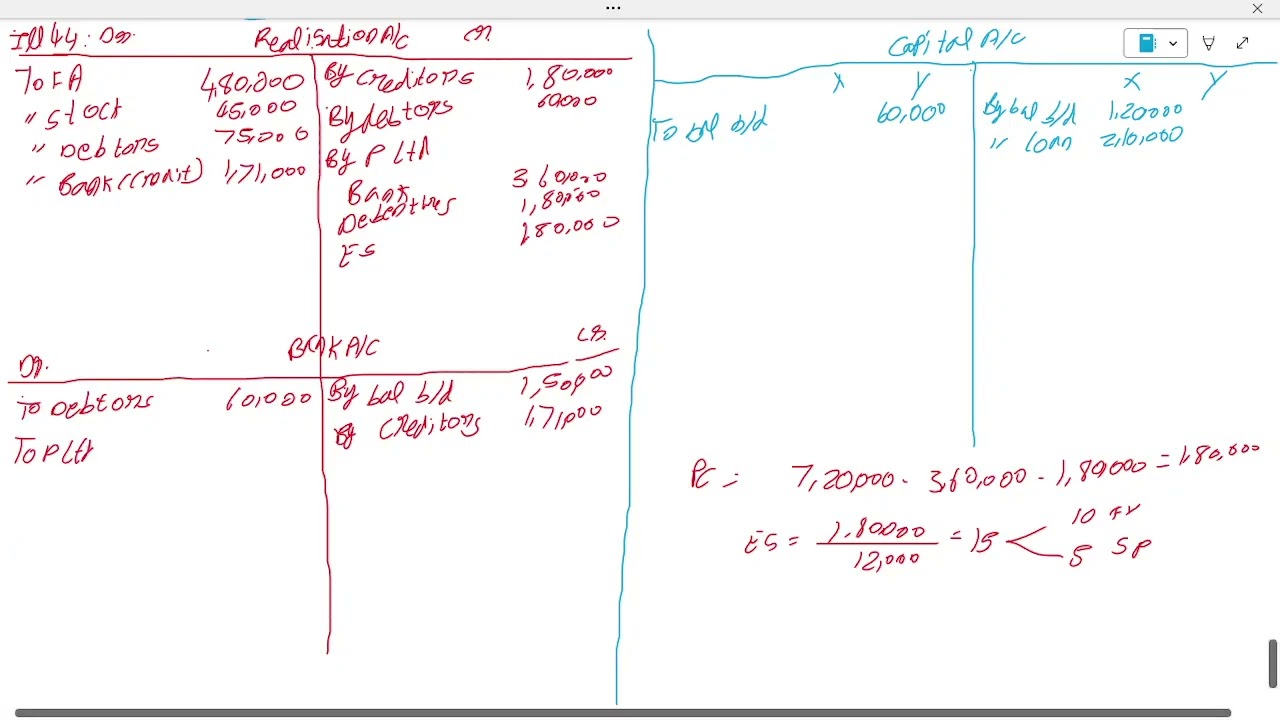 Ill 44: Dr. Realisation A/c Cr.
To FA 480,000 By Creditors 1,80,000
" Stock 45,000 By debtors 60000
" Debtors 75,000 By P Ltd
" Bank (Credit) 1,71,000 Bank 360,000
Debentures 1,80,000
ES 180,000
Dr. Bank A/C Cr.
To Debtors 60,000 By bal b/d 1,50,000
To P Ltd By Creditors 1,71,000
Capital A/C
X Y X Y
To bal b/d 60,000 By bal b/d 1,20000
" loan 2,10,000
PC = 7,20,000 - 3,60,000 - 1,80000 = 1,80,000
ES = 1,80000 / 12,000 = 15
10 FV
5 SP